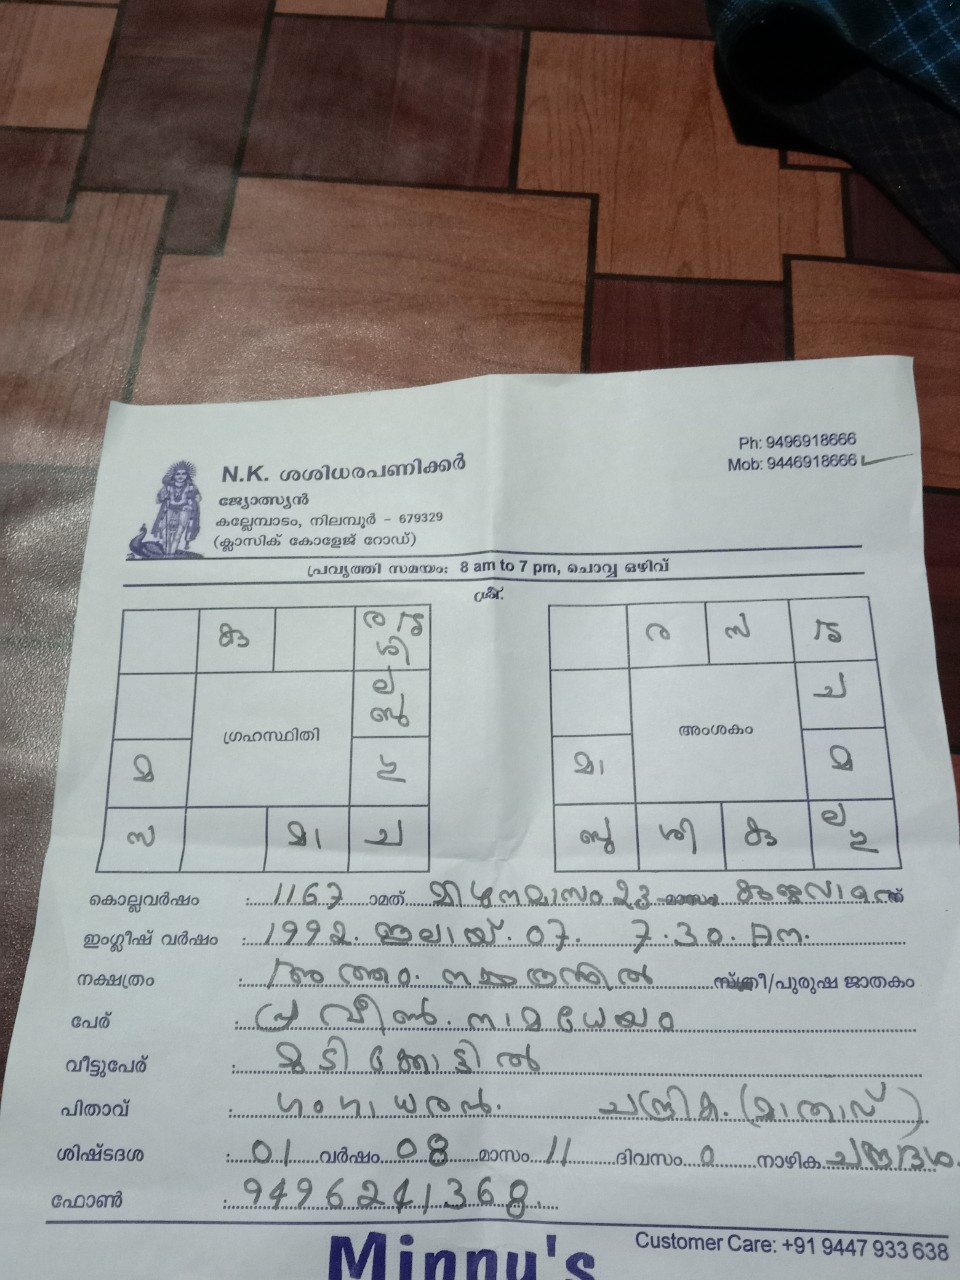 N.K. ശശിധരപണിക്കർ
ജ്യോത്സ്യൻ
കല്ലേമ്പാടം, നിലമ്പൂർ - 679329
(ക്ലാസിക് കോളേജ് റോഡ്)
Ph: 9496918666
Mob: 9446918666
പ്രവൃത്തി സമയം: 8 am to 7 pm, ചൊവ്വ ഒഴിവ്
ശ്രീ.
കു ര ശി
ല ബു
ഗ്രഹസ്ഥിതി
മ ഗു
സ മാ ച
ര സ
ച
അംശകം
മാ മ
ബു ശി കു ല ഗു
കൊല്ലവർഷം : 1167 ാമത് മിഥുനമാസം 23
ഇംഗ്ലീഷ് വർഷം : 1992. ജൂലായ്. 07. 7.30. Am.
നക്ഷത്രം : അത്തം. നക്ഷത്രത്തിൽ സ്ത്രീ/പുരുഷ ജാതകം
പേര് : പ്രവീൺ. നാമധേയം
വീട്ടുപേര് :
പിതാവ് : ഗംഗാധരൻ. ചന്ദ്രിക. (മാതാവ്)
ശിഷ്ടദശ : 01 വർഷം 08 മാസം 11 ദിവസം 0 നാഴിക ചന്ദ്രദശ.
ഫോൺ : 9496241368.
Minnu's
Customer Care: +91 9447 933 638